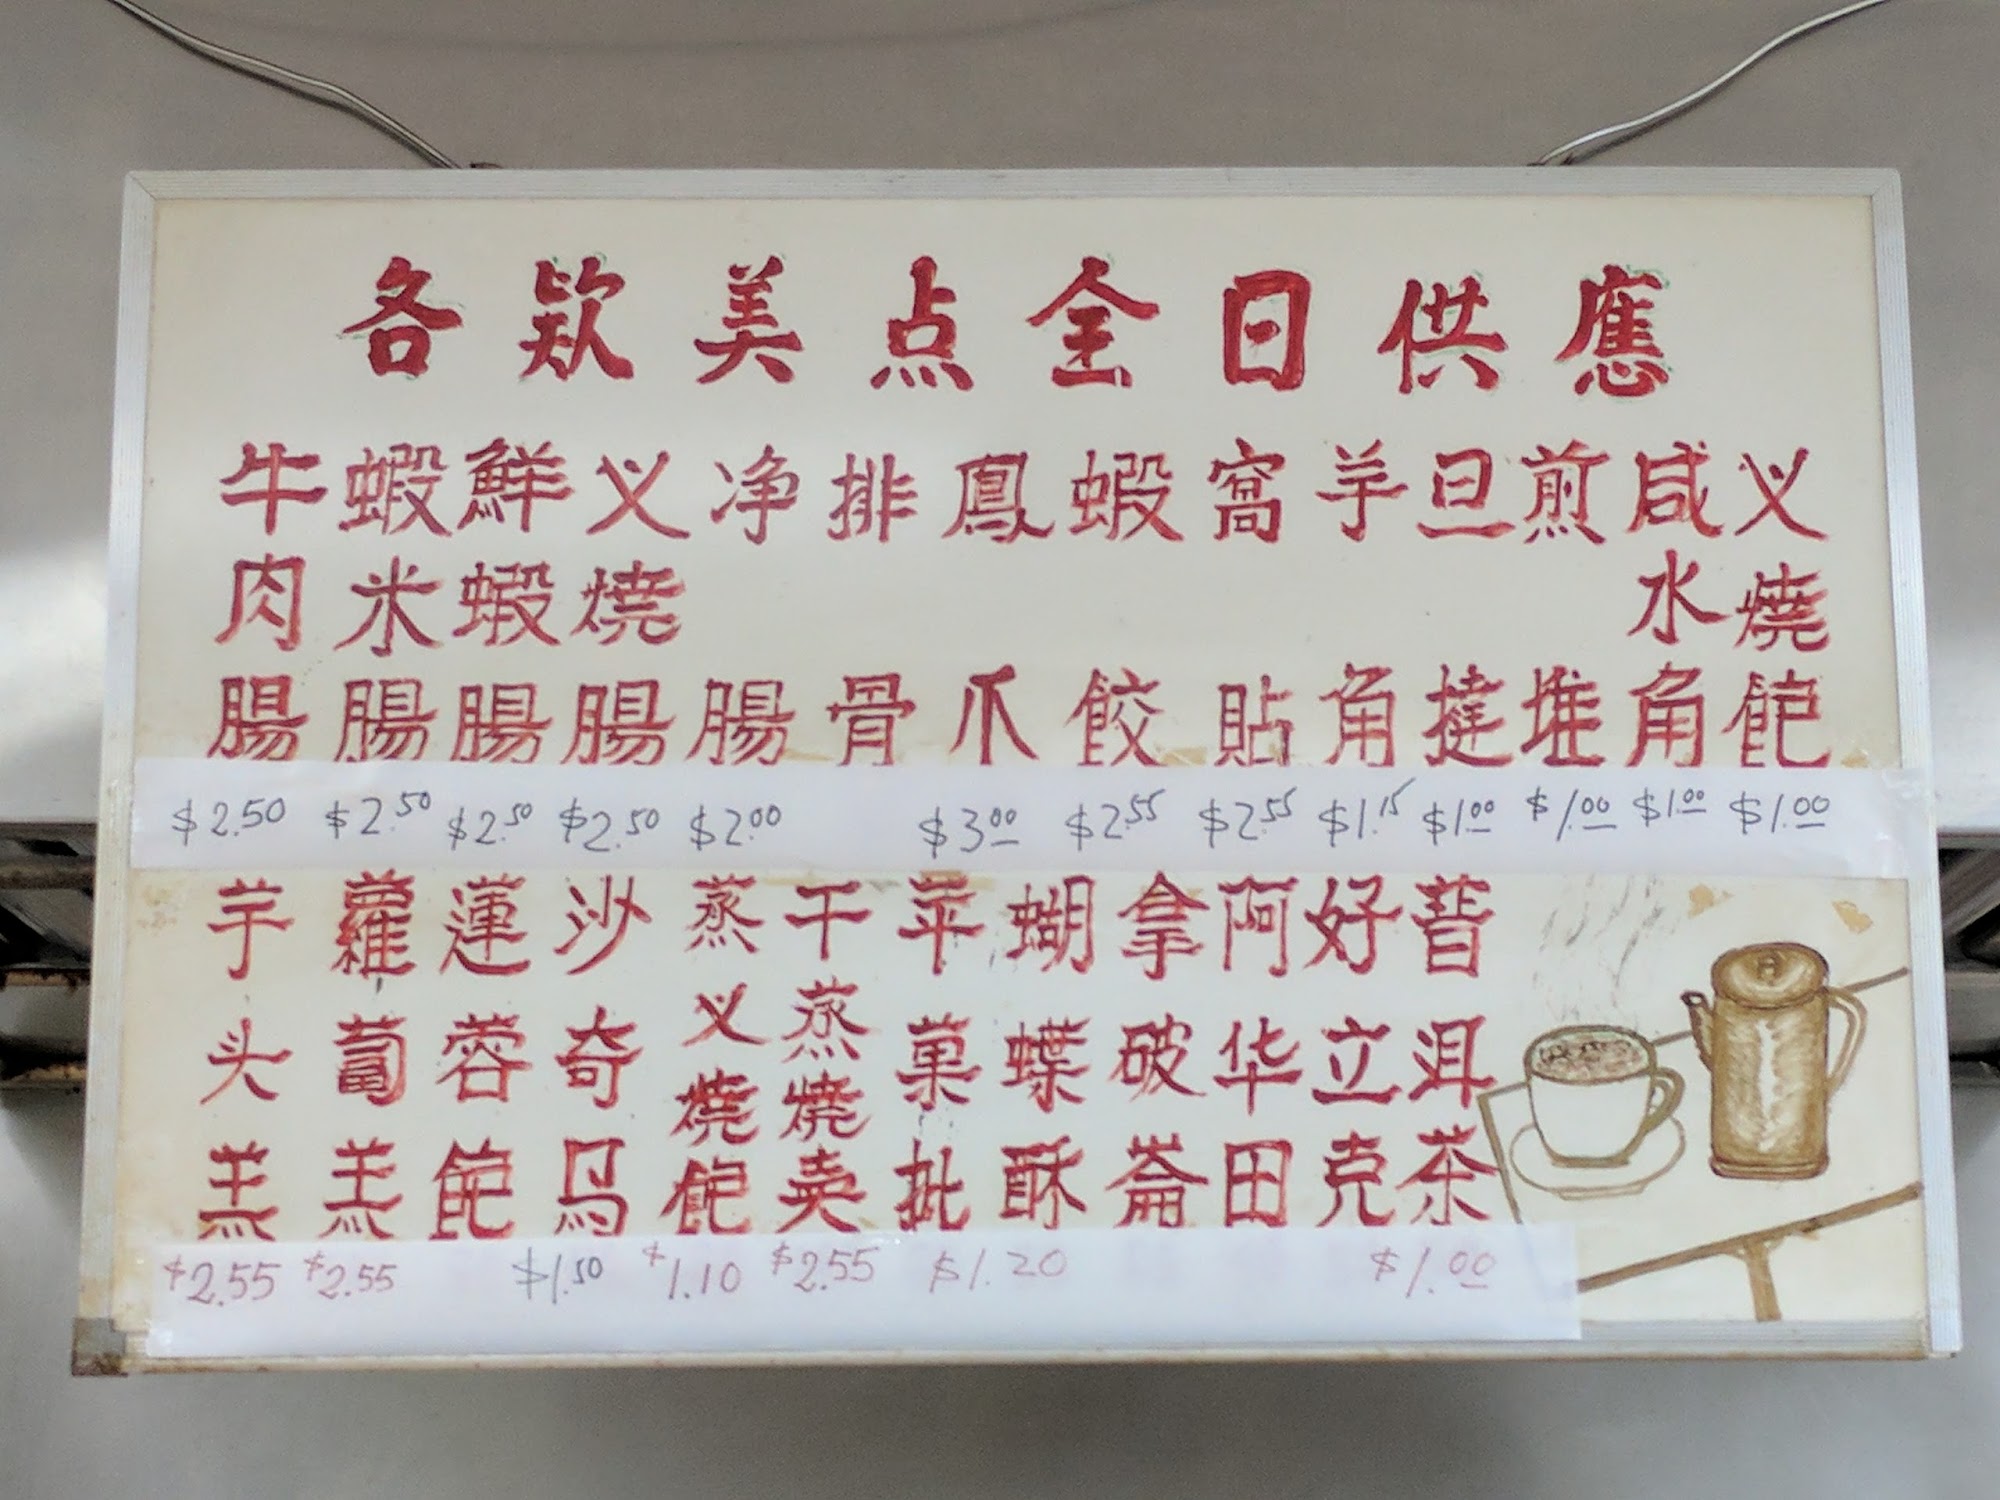 各欵美点全日供應
牛肉腸
$2.50
蝦米腸
$2.50
鮮蝦腸
$2.50
义燒腸
$2.50
净腸
$2.00
排骨
鳳爪
$3.00
蝦餃
$2.55
窩貼
$2.55
芋角
$1.15
旦撻
$1.00
煎堆
$1.00
咸水角
$1.00
义燒飽
$1.00
芋头羔
$2.55
蘿蔔羔
$2.55
蓮蓉飽
沙奇马
$1.50
蒸义燒飽
$1.10
干蒸燒卖
$2.55
苹菓批
$1.20
蝴蝶酥
拿破崙
阿华田
好立克
普洱茶
$1.00